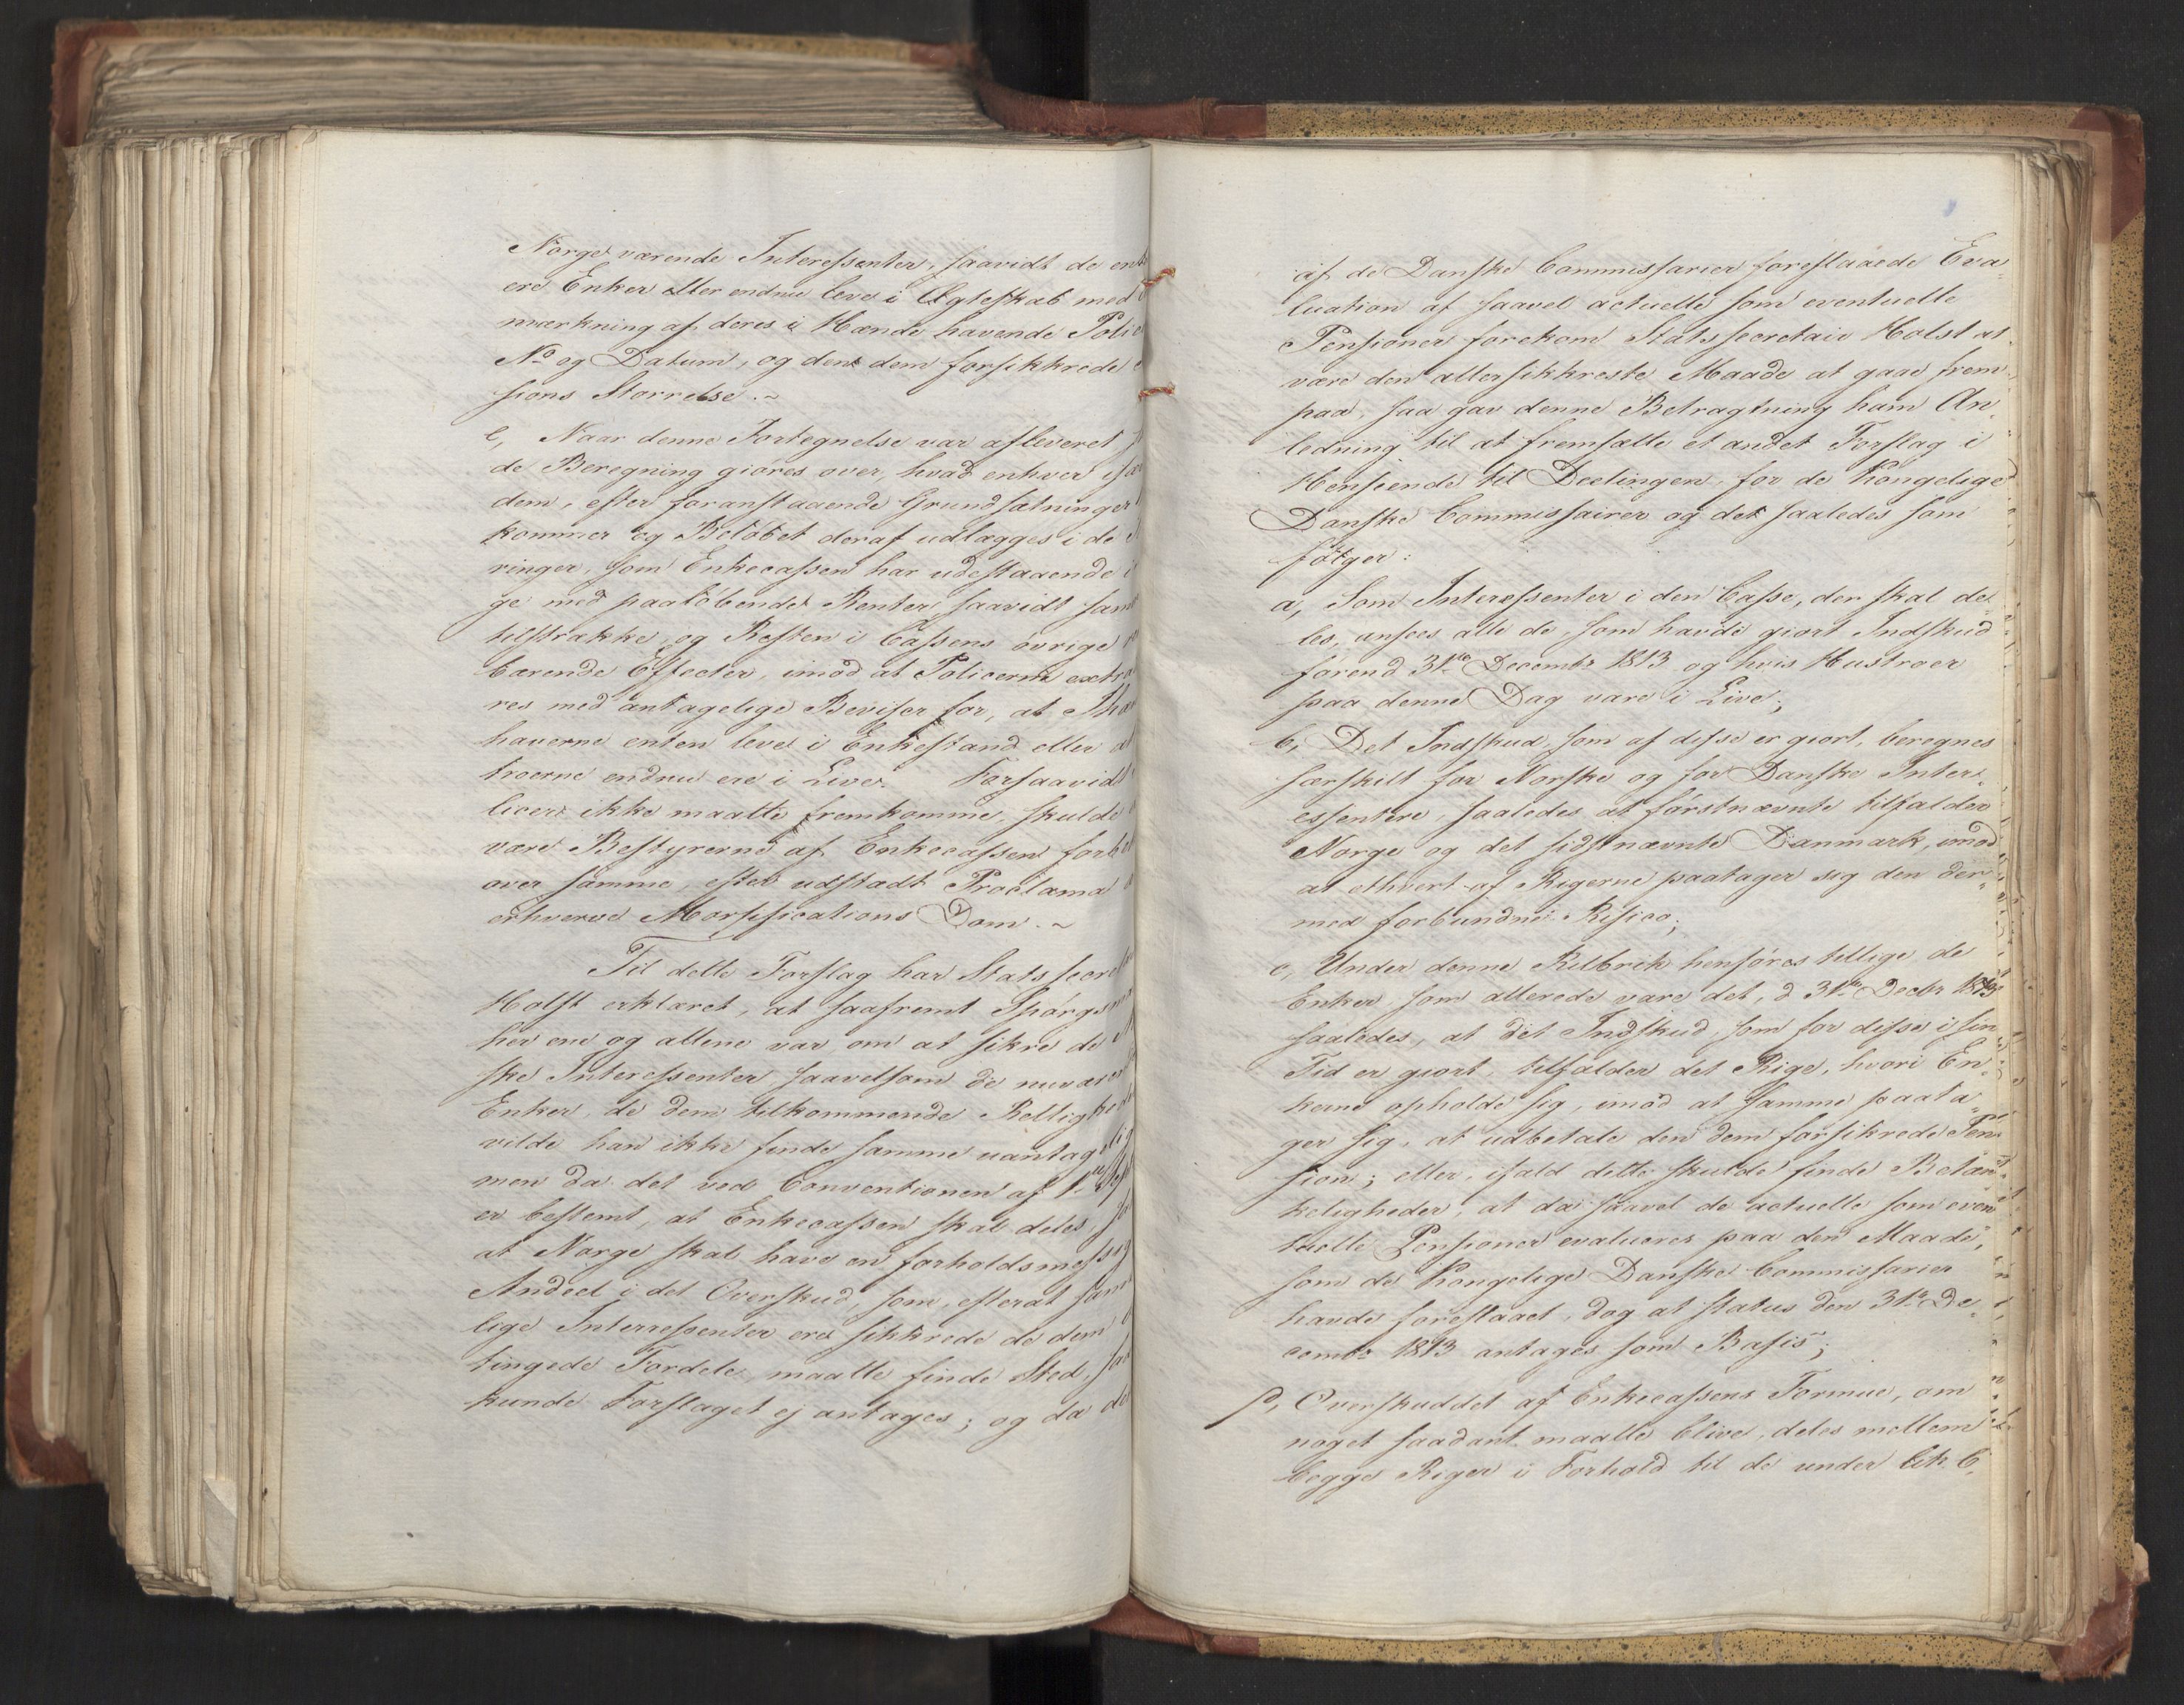 Norge værende Interessenter, saavidt de en
ere Enker eller endnu leve i Ægteskab med
mærkning af deres i Hænde havende Poli
No og Datum, og den dem forsikkrede
sions Størrelse. ~
e, Naar denne Fortegnelse var afleveret
de Beregning giøres over, hvad enhver især
dem, efter foranstaaende Grundsætninger
kommer og Beløbet deraf udlægges i de
ringer, som Enkecassen har udestaaende i
ge med paaløbende Renter, saavidt sam
tilstrække, og Resten i Cassens øvrige
bærende Effecter, imod at Policerne extra
res med antagelige Beviser for, at Ihæn
haverne enten leve i Enkestand eller at
troerne endnu ere i Live. Forsaavidt
licer ikke maatte fremkomme, skulde
være Bestyrerne af Enkecassen forbe
over samme, efter udstædt Proclama
erhverve Mortifications Dom. ~
Til dette Forslag har Statssecre
Holst erklæret, at saafremt Spørgs
her ene og allene var om at sikre de
ske Interessenter saavelsom de nuvær
Enker, de dem tilkommende Rettighe
vilde han ikke finde samme uantagelig
men da det ved Conventionen af 1ste Sept
er bestemt, at Enkecassen skal deles,
at Norge skal have en forholdsmessig
Andeel i det Overskud, som, efterat sam
lige Interressenter ere sikkrede de dem
tingede Fordele, maatte finde Sted, saa
kunde Forslaget ej antages; og da de
af de Danske Commissarier foreslaaede Eva
luation af saavel actuelle som eventuelle
Pensioner forekom Statssecretair Holst at
være den allersikkreste Maade at gaae frem
paa, saa gav denne Betragtning ham An
ledning til at fremsætte et andet Forslag i
Henseende til Deelingen, for de Kongelige
Danske Commissairer og det saaledes som
følger:
a, Som Interessenter i den Casse, der skal de
les, ansees alle de, som havde giort Indskud
førend 31te Decembr 1813 og hvis Hustroer
paa denne Dag vare i Live;
b, Det Indskud, som af disse er giort, beregnes
særskilt for Norske og for Danske Inter
essentere, saaledes at førstnævnte tilfalder
Norge og det sidstnævnte Danmark, imod
at ethvert af Rigerne paatager sig den der
med forbundne Risico;
c, Under denne Rubrik henføres tillige de
Enker, som allerede vare det, d 31te Decbr 1813
saaledes, at det Indskud, som for disse i sin
Tid er giort, tilfalder det Rige, hvori En
kerne opholde sig, imod at samme paata
ger sig, at udbetale den dem forsikrede Pen
sion; eller, ifald dette skulde finde Betæn
keligheder, at da saavel de actuelle som even
tuelle Pensioner evalueres paa den Maade,
som de Kongelige Danske Commissarier
havde foreslaaet, dog at status den 31te De
cembr 1813 antages som Basis;
d, Overskuddet af Enkecassens Formue, om
noget saadant maatte blive, deles mellem
begge Riger i Forhold til de under Litr. b,